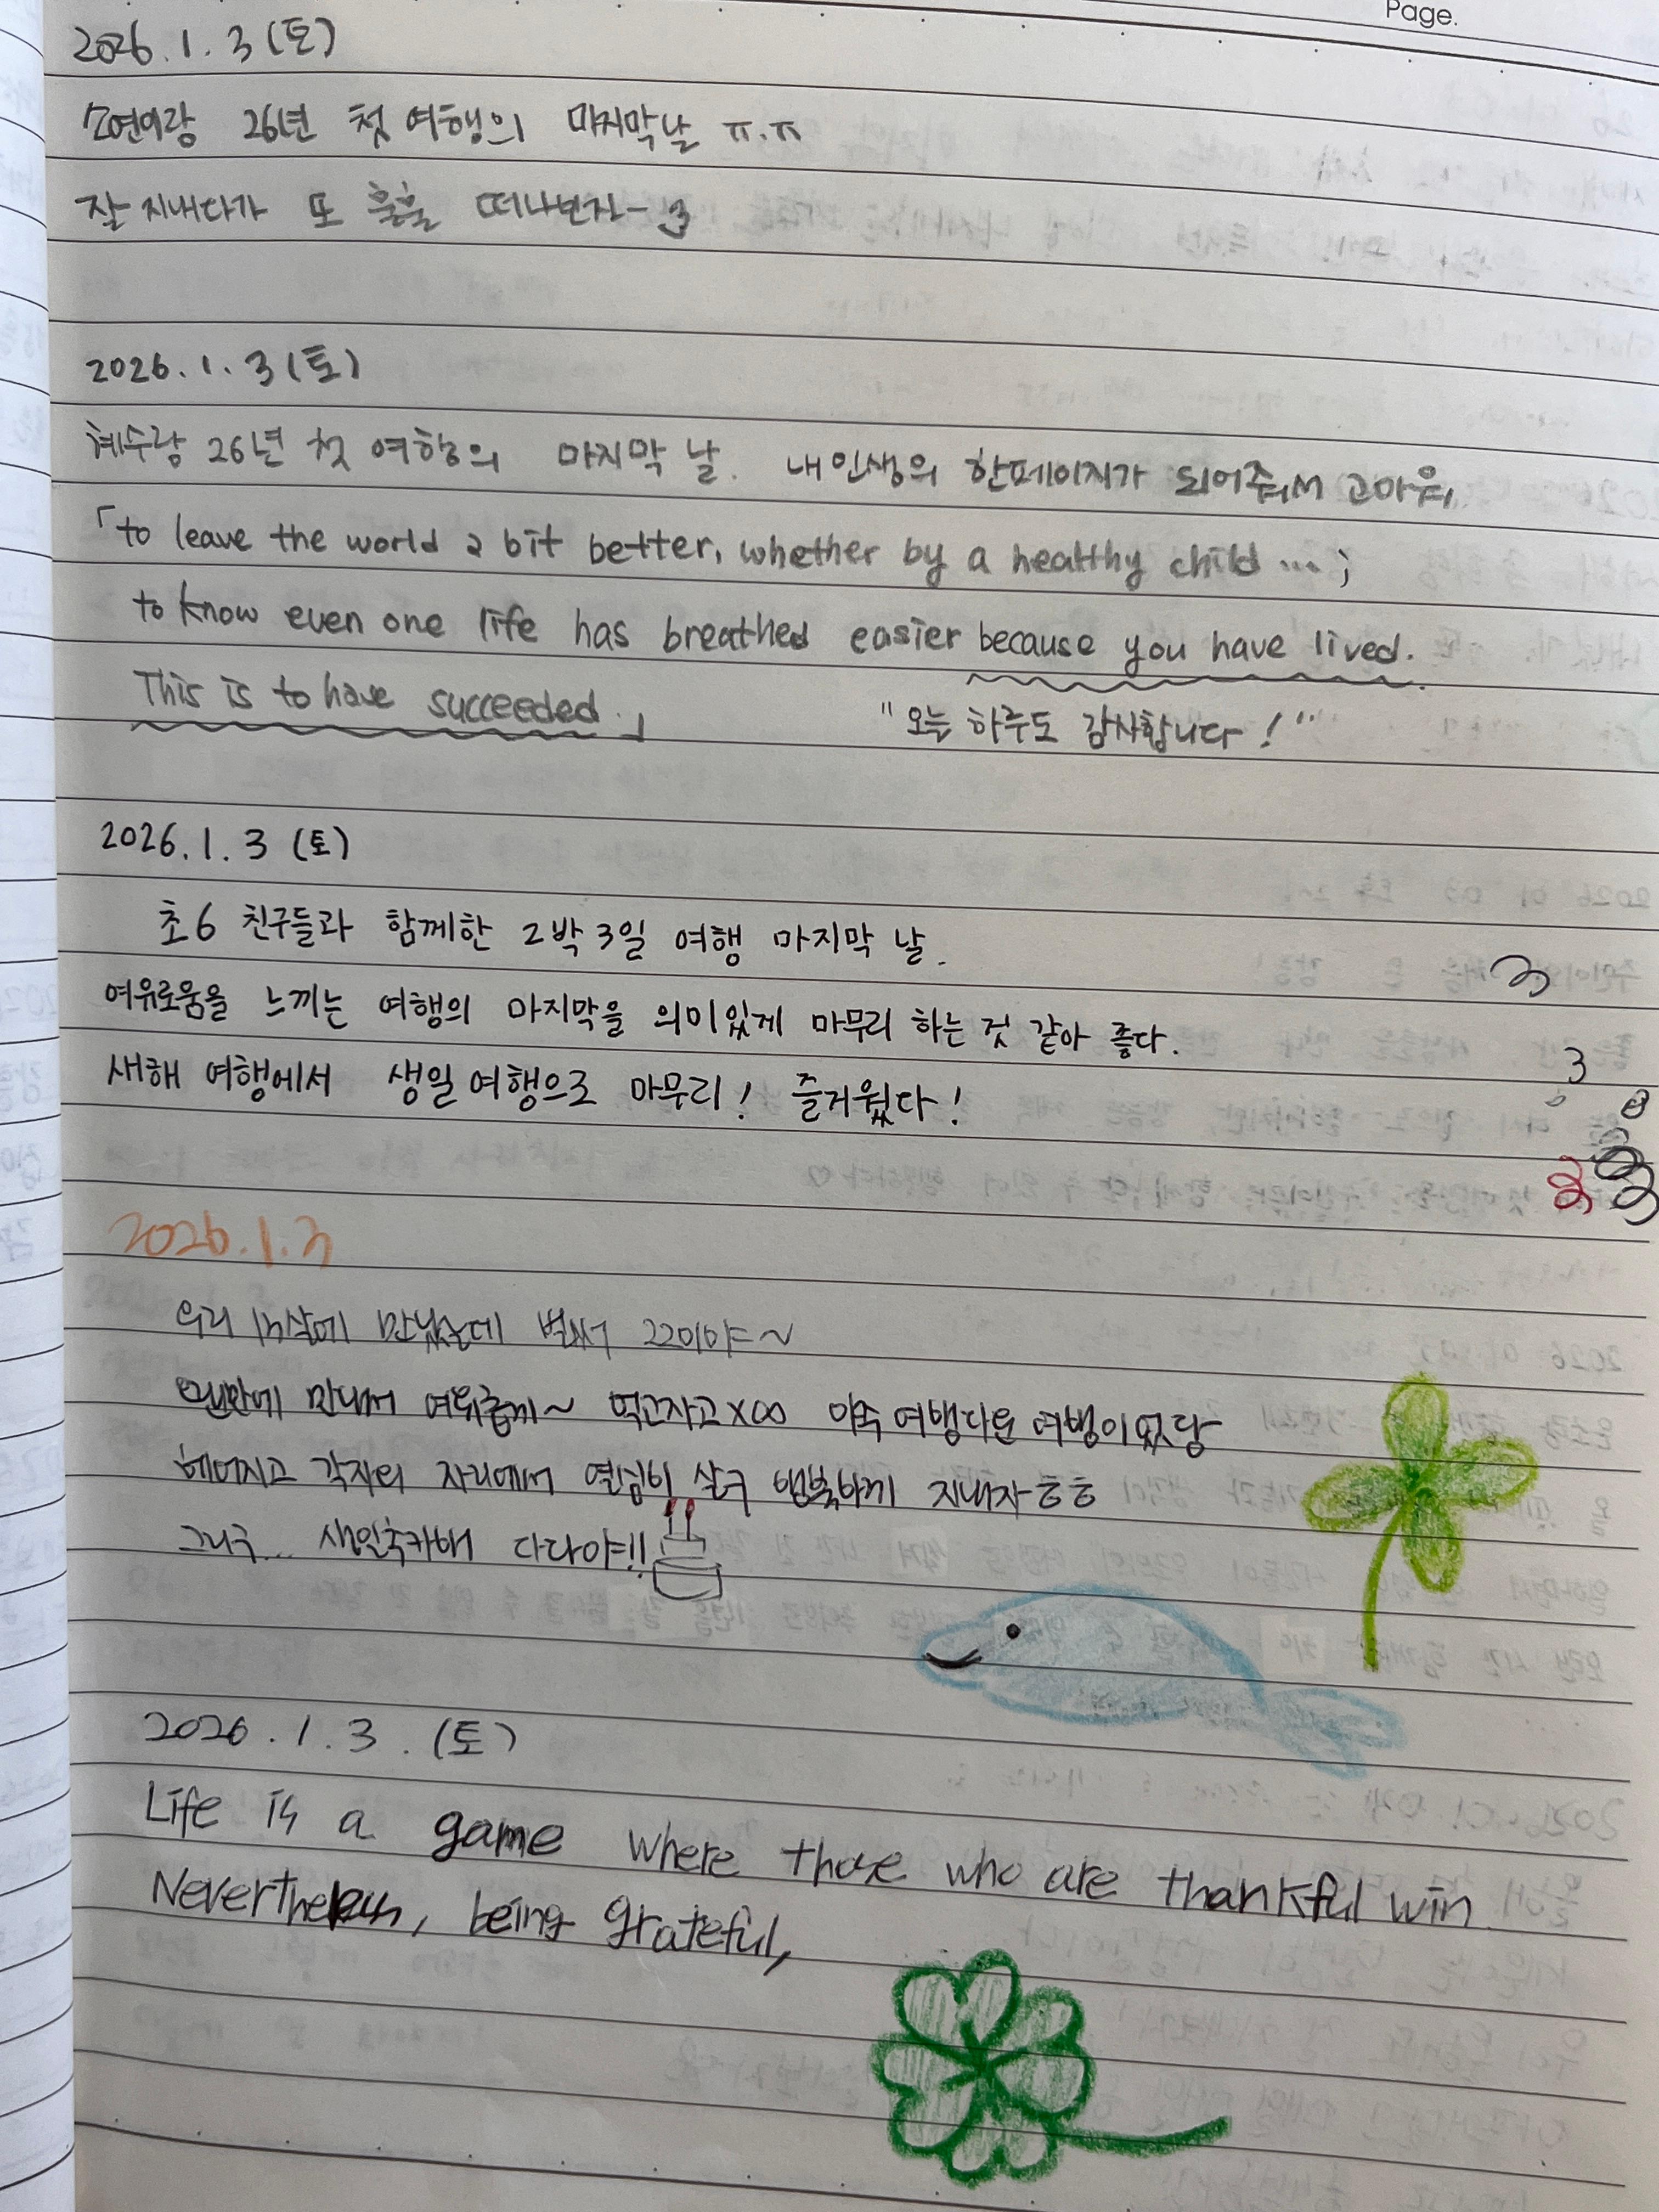 Page.
2026. 1. 3 (토)
소연이랑 26년 첫 여행의 마지막날 ㅠ.ㅠ
잘 지내다가 또 훌훌 떠나보자-3
2026. 1. 3 (토)
혜수랑 26년 첫 여행의 마지막 날. 내 인생의 한페이지가 되어줘서 고마워,
「to leave the world a bit better, whether by a healthy child ... ;
to know even one life has breathed easier because you have lived.
This is to have succeeded.」 "오늘 하루도 감사합니다!"
2026. 1. 3 (토)
초6 친구들과 함께한 2박 3일 여행 마지막 날.
여유로움을 느끼는 여행의 마지막을 의미있게 마무리 하는 것 같아 좋다.
새해 여행에서 생일 여행으로 마무리! 즐거웠다!
2026.1.3
우리 13살에 만났는데 벌써 22이야~
만나서 먹고자고×∞ 아주 여행다운 여행이었당
헤어지고 각자의 자리에서 열심히 살구 행복하게 지내자 ㅎㅎ
그리구... 생일축카해 다다야!!
2026. 1. 3. (토)
Life is a game where those who are thankful win.
Nevertheless, being grateful,